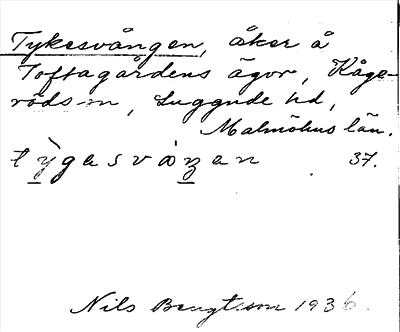 Tykesvången, åker å
Toftagårdens ägor, Kåge-
röds sn, Luggude hd,
Malmöhus län.
tỳgasvåŋan 37.
Nils Bengtsson 1936.